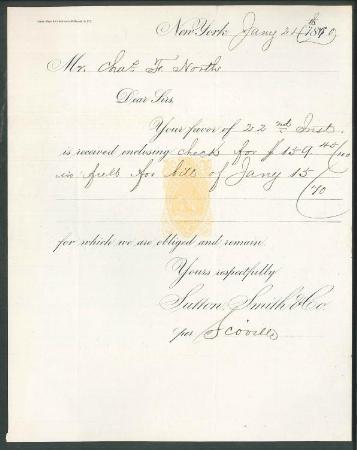 New-York Jany 24 1870
Mr. Chas. F. North
Dear Sirs,
Your favor of 22nd Inst.
is received enclosing check for $ 159 45/100
in full for bill of Jany 15
/70
for which we are obliged and remain,
Yours respectfully
Sutton, Smith & Co.
per Scovill